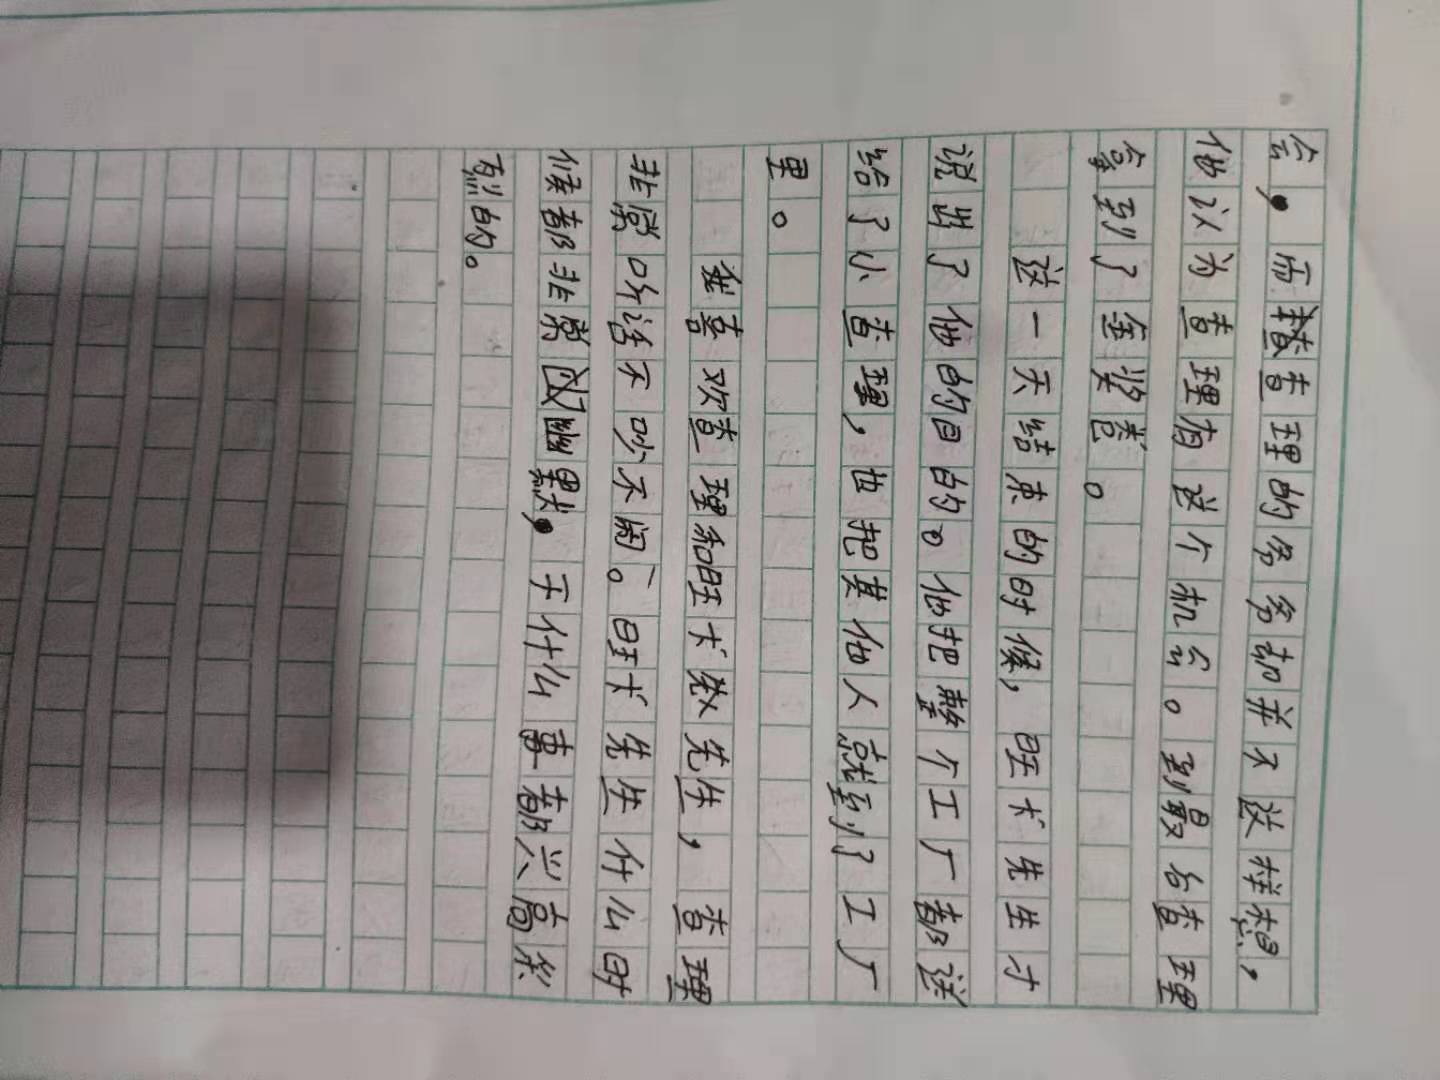 会，而查理的爷爷却并不这样想，
他认为查理有这个机会。到最后查理
拿到了金奖卷。
这一天结束的时候，旺卡先生才
说出了他的目的。他把整个工厂都送
给了小查理，也把其他人就到了工厂
里。
我喜欢查理和旺卡先生，查理
非常听话不吵不闹。旺卡先生什么时
候都非常幽默，干什么事都兴高采
烈的。